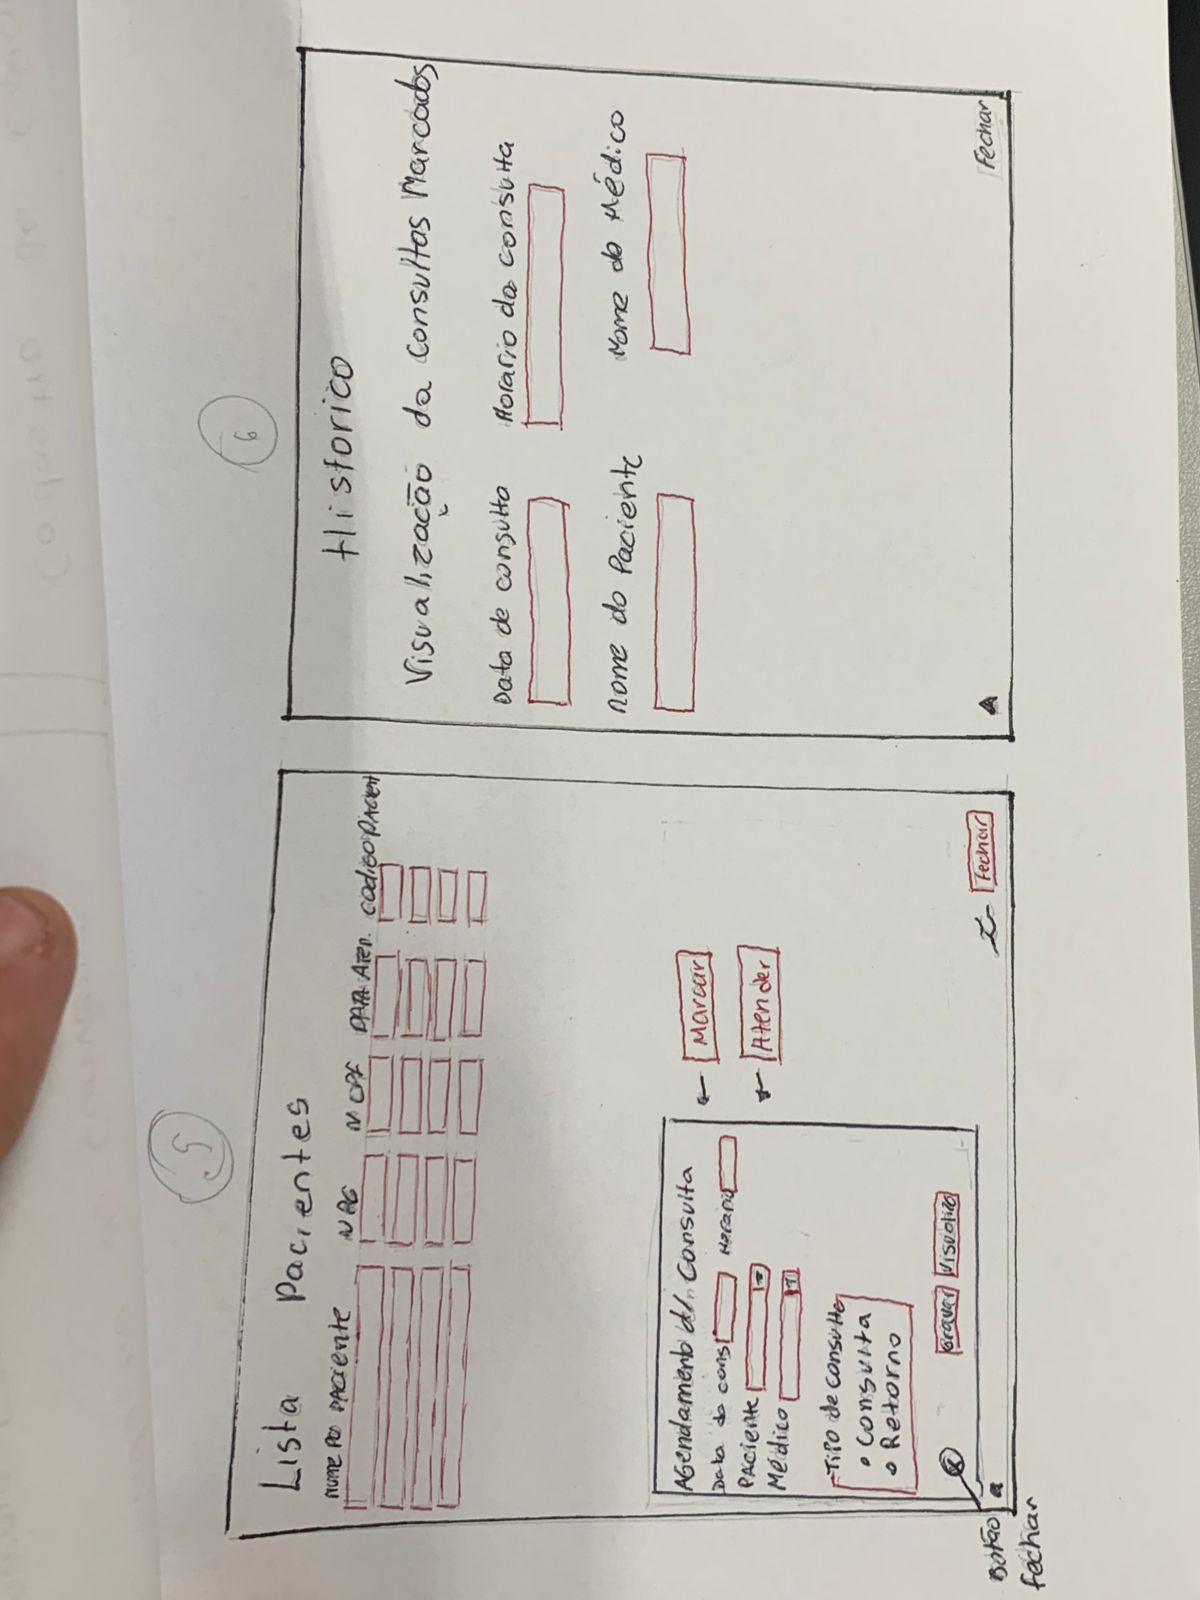 5
Lista Pacientes
Nome do Paciente N RG N CPF DATA Aten. Codigo Pacient
Marcar
Atender
Agendamento de Consulta
Data da cons Horario
Paciente
Médico
Tipo de consulta
Consulta
Retorno
Gravar Visualiza
Fechar
Botão
Fechar
6
Historico
Visualização da Consultas Marcados
Data de consulta Horario da consulta
Nome do Paciente Nome do Médico
Fechar